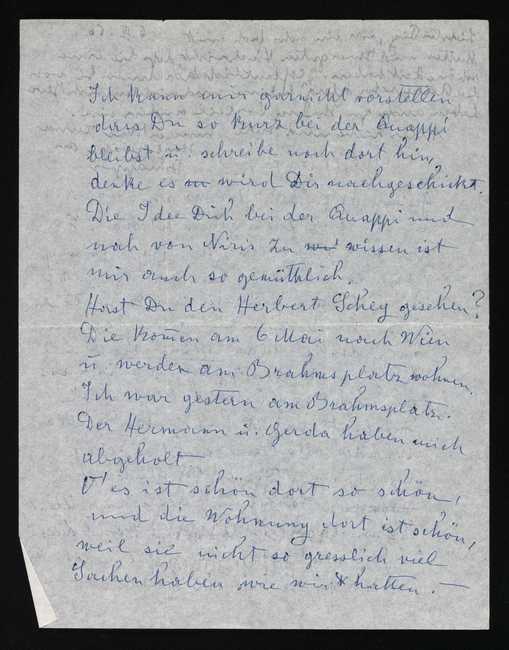 Ich kann mir garnicht vorstellen
dass Du so kurz bei der Quappi
bleibst u. schreibe noch dort hin,
denke es wird Dir nachgeschickt.
Die Idee Dich bei der Quappi und
nah von Niris zu wissen ist
mir auch so gemüthlich.
Hast Du den Herbert Schey gesehen?
Die kom̄en am 6 Mai nach Wien
u. werden am Brahmsplatz wohnen.
Ich war gestern am Brahmsplatz.
Der Hermann u. Gerda haben mich
abgeholt
O' es ist schön dort so schön,
und die Wohnung dort ist schön,
weil sie nicht so gresslich viel
Sachen haben wie wir hatten. —